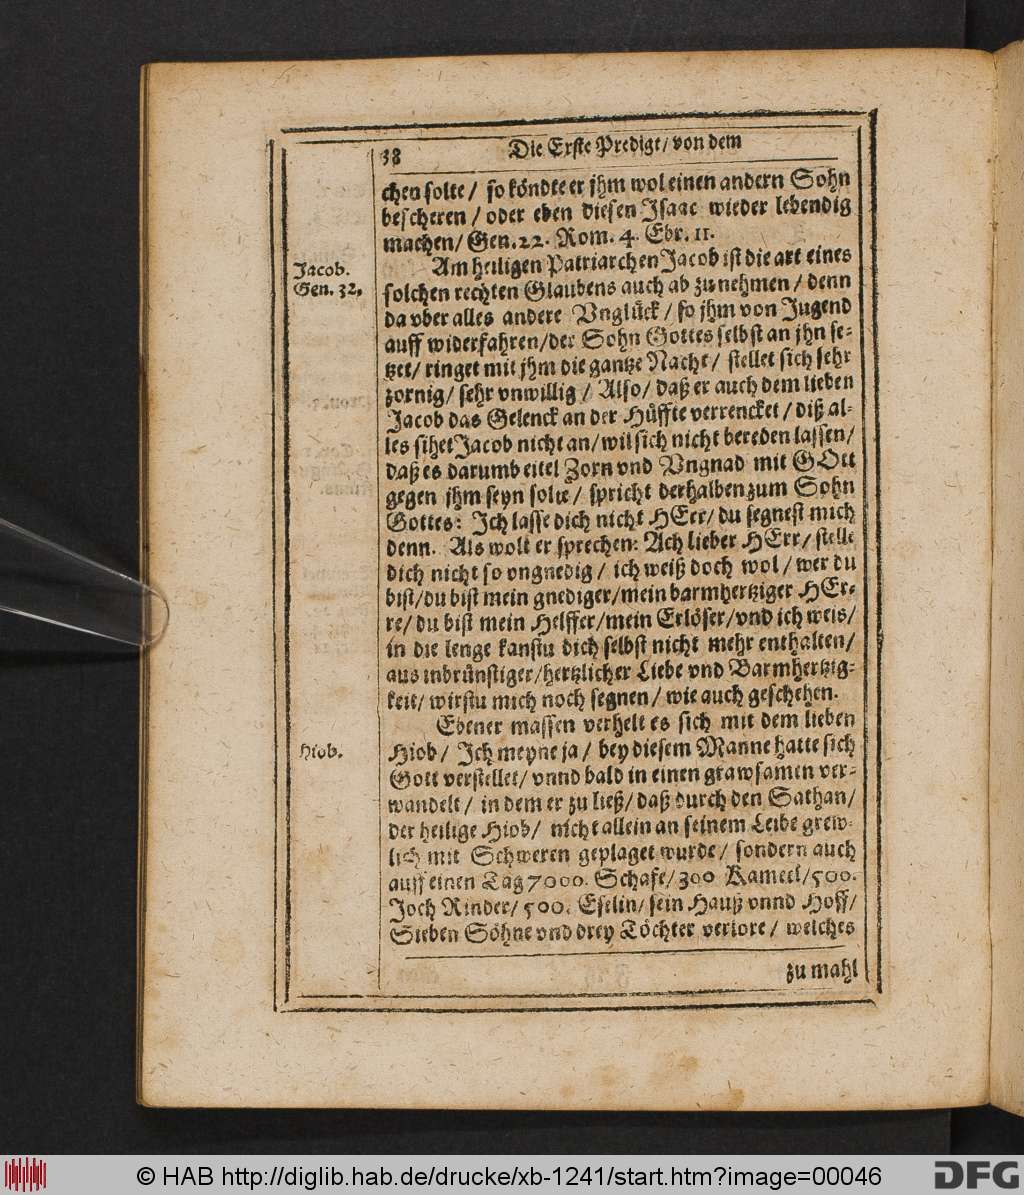 38 Die Erste Predigt/ von dem
chen solte/ so köndte er jhm wol einen andern Sohn
bescheren/ oder eben diesen Isaac wieder lebendig
machen/ Gen. 22. Rom. 4. Ebr. 11.
Jacob.
Gen. 32.
Am heiligen Patriarchen Jacob ist die art eines
solchen rechten Glaubens auch ab zu nehmen/ denn
da vber alles andere Vnglück/ so jhm von Jugend
auff widerfahren/ der Sohn Gottes selbst an jhn se-
tzet/ ringet mit jhm die gantze Nacht/ stellet sich sehr
zornig/ sehr vnwillig/ Also/ daß er auch dem lieben
Jacob das Gelenck an der Hüffte verrencket/ diß al-
les sihet Jacob nicht an/ wil sich nicht bereden lassen/
daß es darumb eitel Zorn vnd Vngnad mit GOtt
gegen jhm seyn solte/ spricht derhalben zum Sohn
Gottes: Ich lasse dich nicht HErr/ du segnest mich
denn. Als wolt er sprechen: Ach lieber HErr/ stelle
dich nicht so vngnedig/ ich weiß doch wol/ wer du
bist/ du bist mein gnediger/ mein barmhertziger HEr-
re/ du bist mein Helffer/ mein Erlöser/ vnd ich weis/
in die lenge kanstu dich selbst nicht mehr enthalten/
aus inbrünstiger/ hertzlicher Liebe vnd Barmhertzig-
keit/ wirstu mich noch segnen/ wie auch geschehen.
Ebener massen verhelt es sich mit dem lieben
Hiob.
Hiob/ Ich meyne ja/ bey diesem Manne hatte sich
Gott verstellet/ vnnd bald in einen grawsamen ver-
wandelt/ in dem er zu ließ/ daß durch den Sathan/
der heilige Hiob/ nicht allein an seinem Leibe grew-
lich mit Schweren geplaget wurde/ sondern auch
auff einen Tag 7000. Schafe/ 300 Kameel/ 500.
Joch Rinder/ 500. Eselin/ sein Hauß vnnd Hoff/
Sieben Söhne vnd drey Töchter verlore/ welches
zu mahl
© HAB http://diglib.hab.de/drucke/xb-1241/start.htm?image=00046
DFG